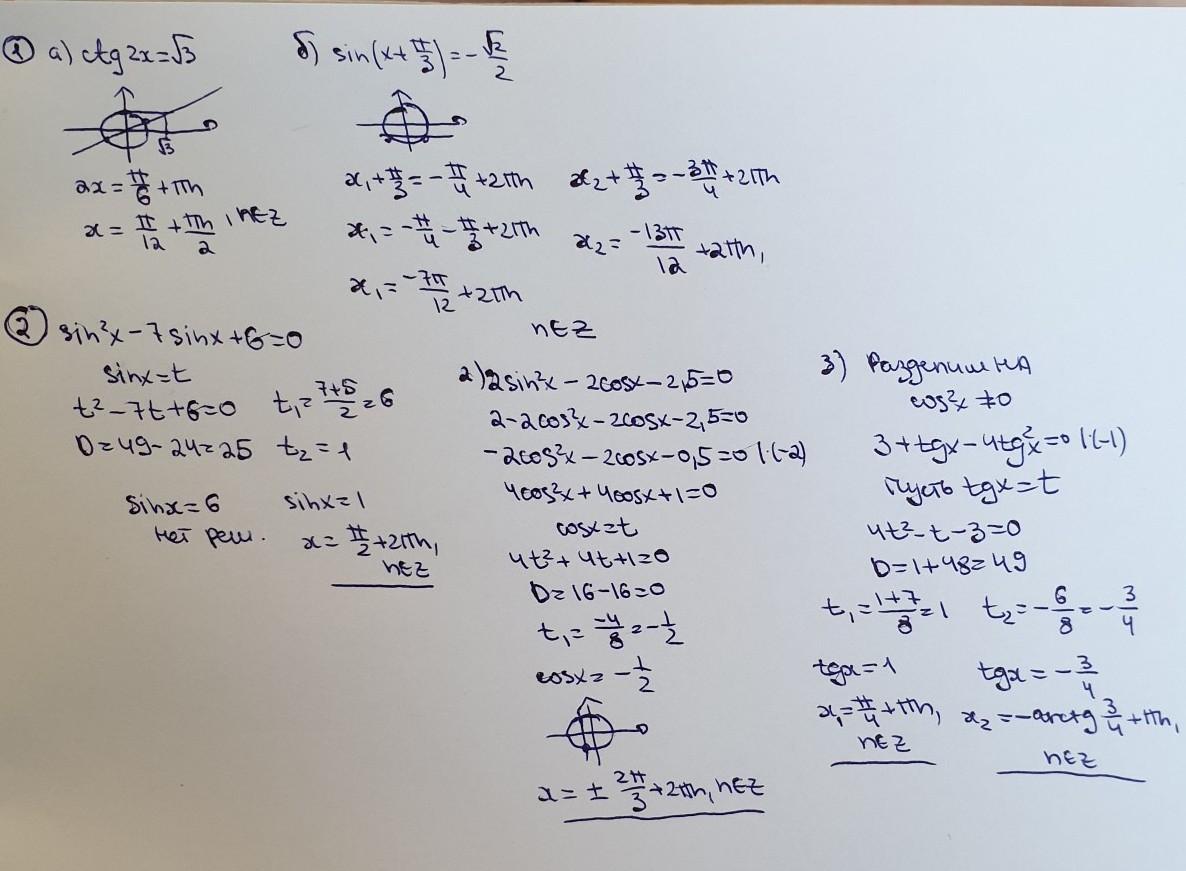 ① а) ctg2x=√3
2x=π/6+πn
x=π/12+πn/2, n∈Z
б) sin(x+π/3)=-√2/2
x₁+π/3=-π/4+2πn
x₁=-π/4-π/3+2πn
x₁=-7π/12+2πn
x₂+π/3=-3π/4+2πn
x₂=-13π/12+2πn,
n∈Z
② sin²x-7sinx+6=0
sinx=t
t²-7t+6=0
D=49-24=25
t₁=7+5/2=6
t₂=1
sinx=6
нет реш.
sinx=1
x=π/2+2πn,
n∈Z
2) 2sin²x-2cosx-2,5=0
2-2cos²x-2cosx-2,5=0
-2cos²x-2cosx-0,5=0 |·(-2)
4cos²x+4cosx+1=0
cosx=t
4t²+4t+1=0
D=16-16=0
t₁=-4/8=-1/2
cosx=-1/2
x=±2π/3+2πn, n∈Z
3) Разделим на
cos²x≠0
3+tgx-4tg²x=0 |·(-1)
Пусть tgx=t
4t²-t-3=0
D=1+48=49
t₁=1+7/8=1
t₂=-6/8=-3/4
tgx=1
x₁=π/4+πn,
n∈Z
tgx=-3/4
x₂=-arctg 3/4+πn,
n∈Z